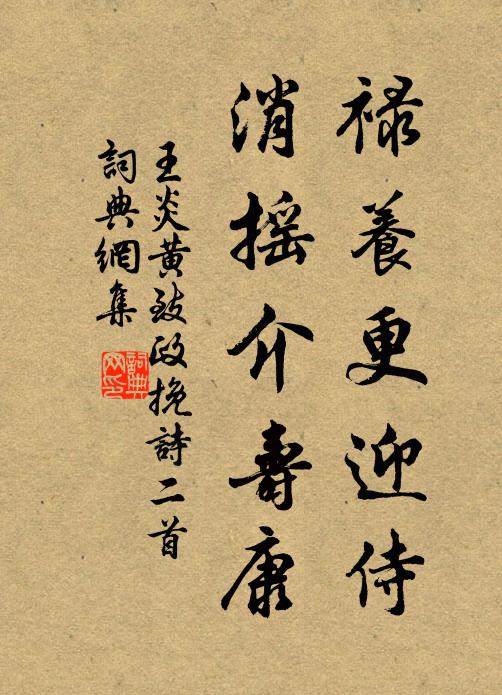 禄養更迎侍
消摇介壽康
王炎黄致政挽詩二首
詞典網集
詞典网印